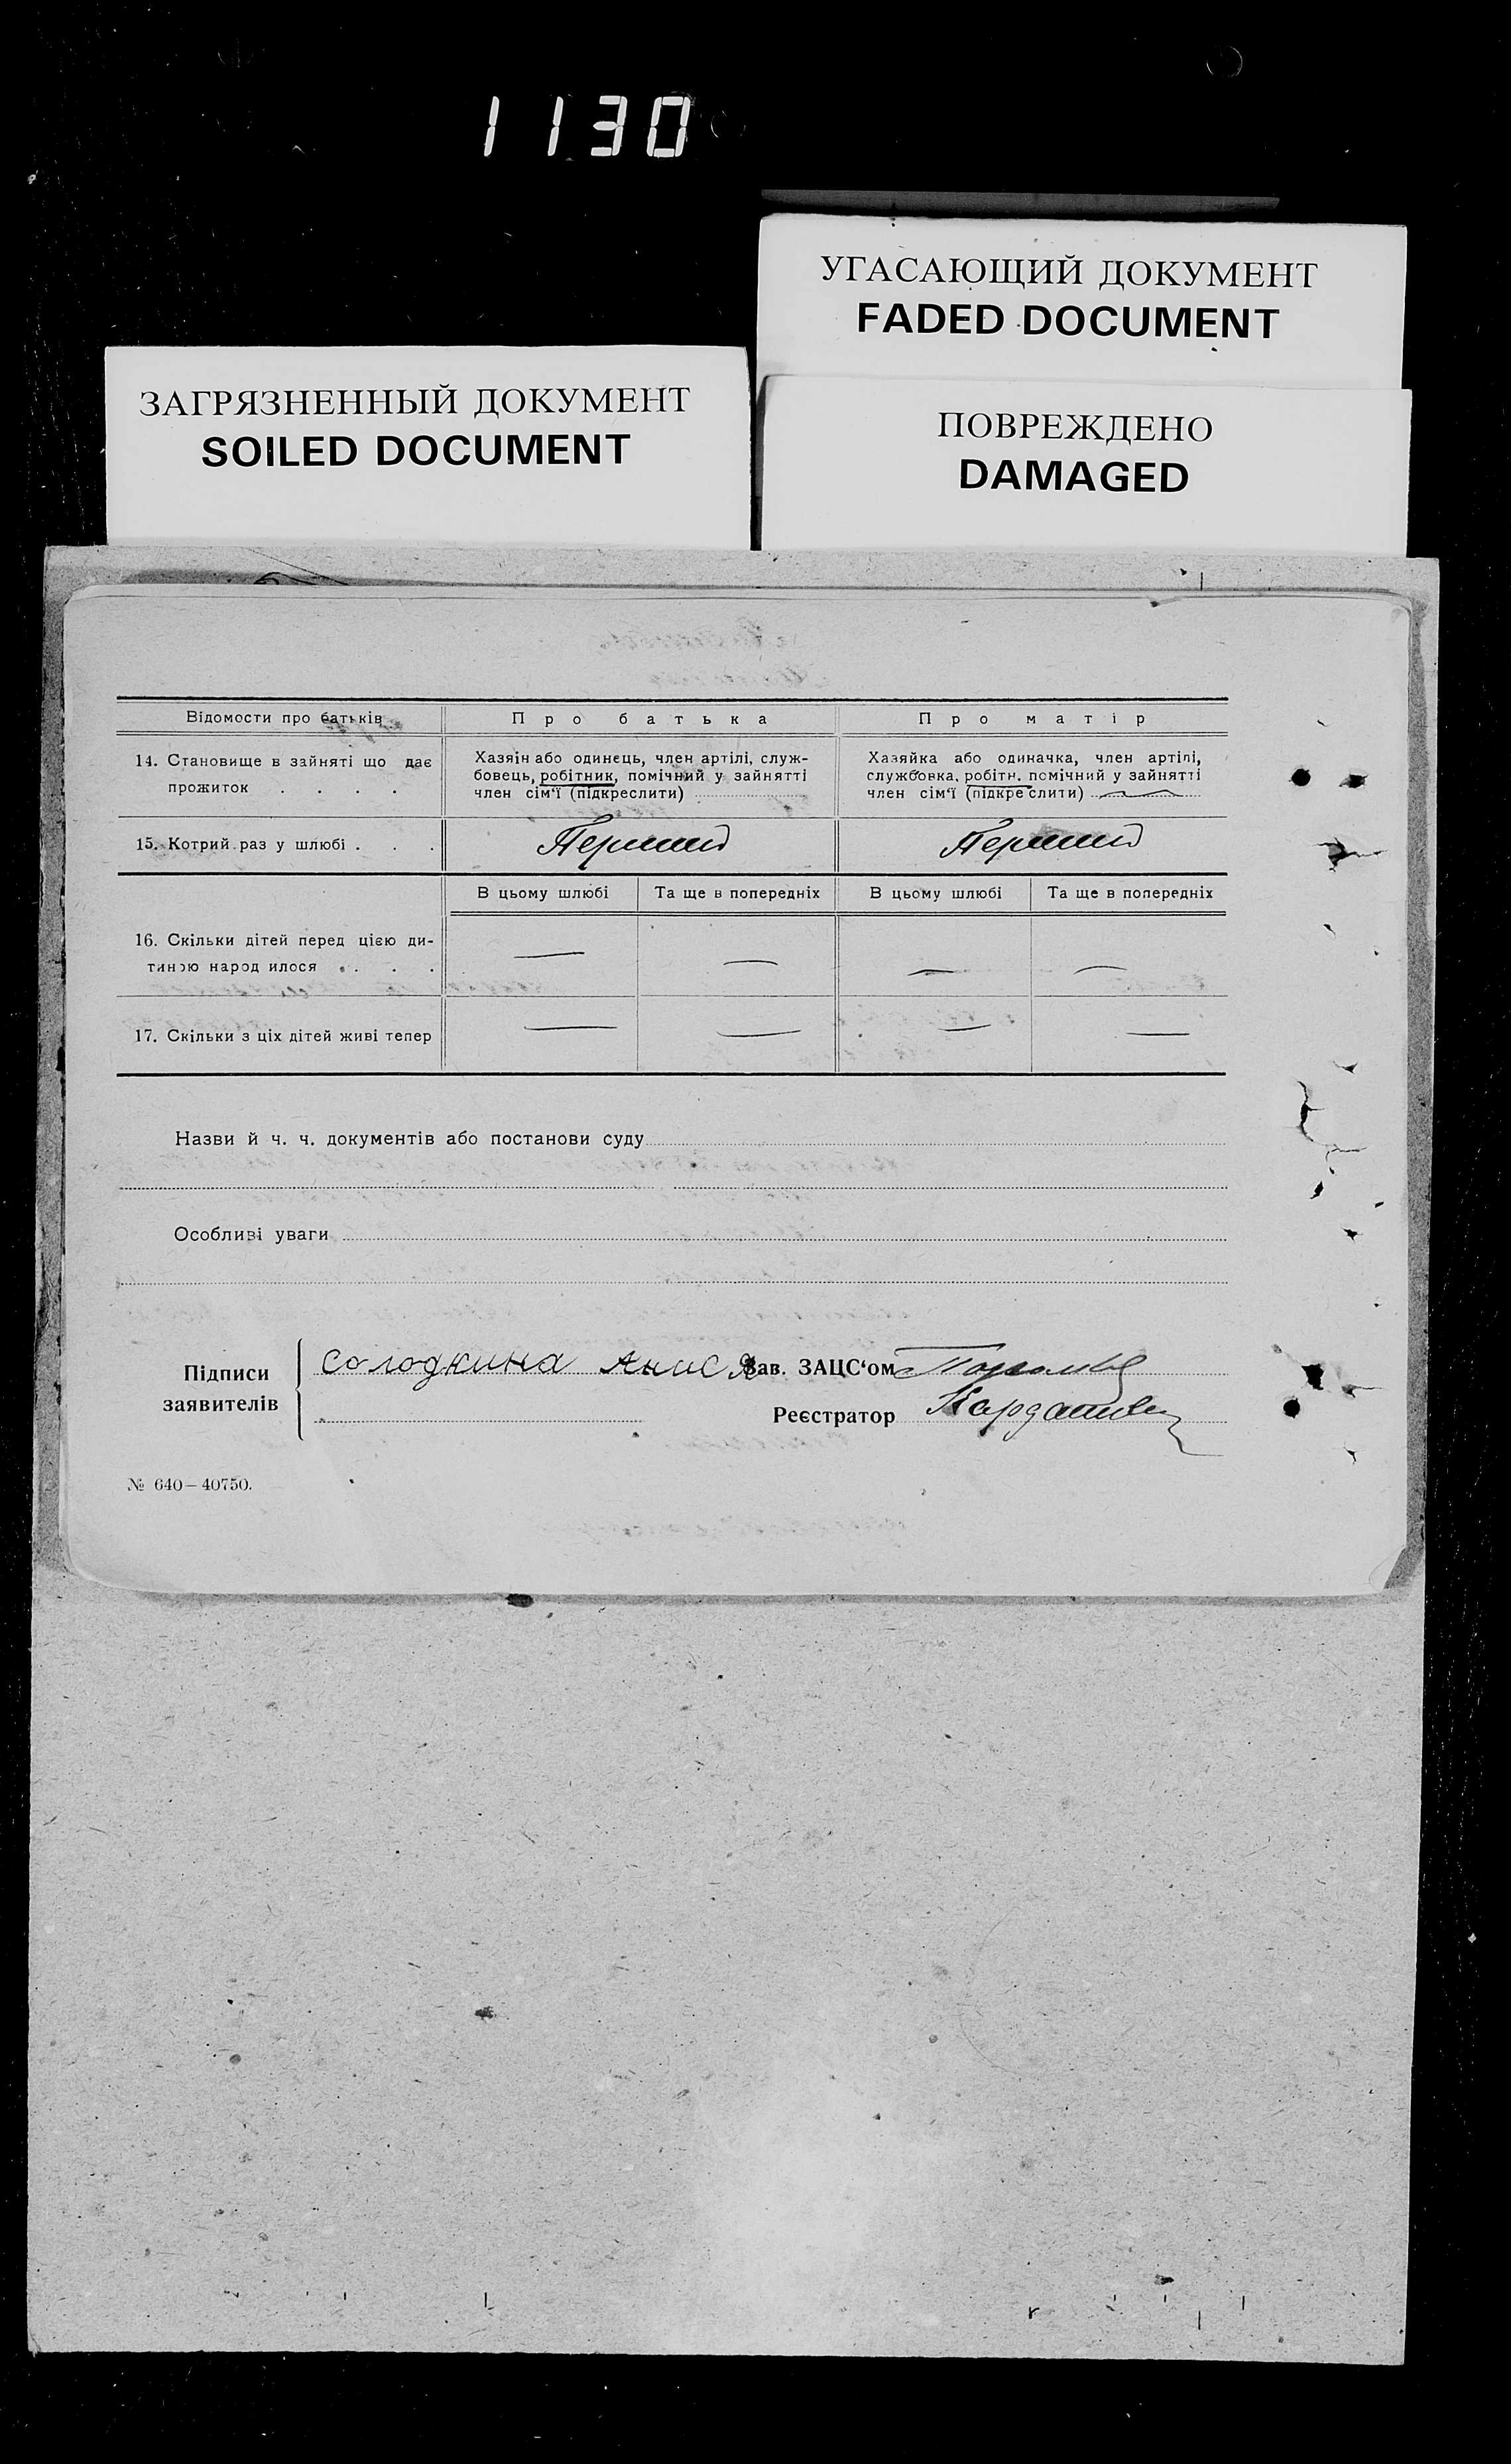 1130
УГАСАЮЩИЙ ДОКУМЕНТ
FADED DOCUMENT
ЗАГРЯЗНЕННЫЙ ДОКУМЕНТ
SOILED DOCUMENT
ПОВРЕЖДЕНО
DAMAGED
Відомости про батьків
Про батька
Про матір
14. Становище в зайняті що дає
прожиток . . . .
Хазяін або одинець, член артілі, служ-
бовець, робітник, помічний у зайнятті
член сім'ї (підкреслити)
Хазяйка або одиначка, член артілі,
службовка, робітн. помічний у зайнятті
член сім'ї (підкреслити)
15. Котрий раз у шлюбі . . .
Перший
Перший
В цьому шлюбі
Та ще в попередніх
В цьому шлюбі
Та ще в попередніх
16. Скільки дітей перед цією ди-
тиною народилося . . . .
— — — —
17. Скільки з ціх дітей живі тепер
— — — —
Назви й ч. ч. документів або постанови суду
Особливі уваги
Підписи
заявителів
Солодкина Анися
Зав. ЗАЦС'ом
Реєстратор
№ 640—40750.